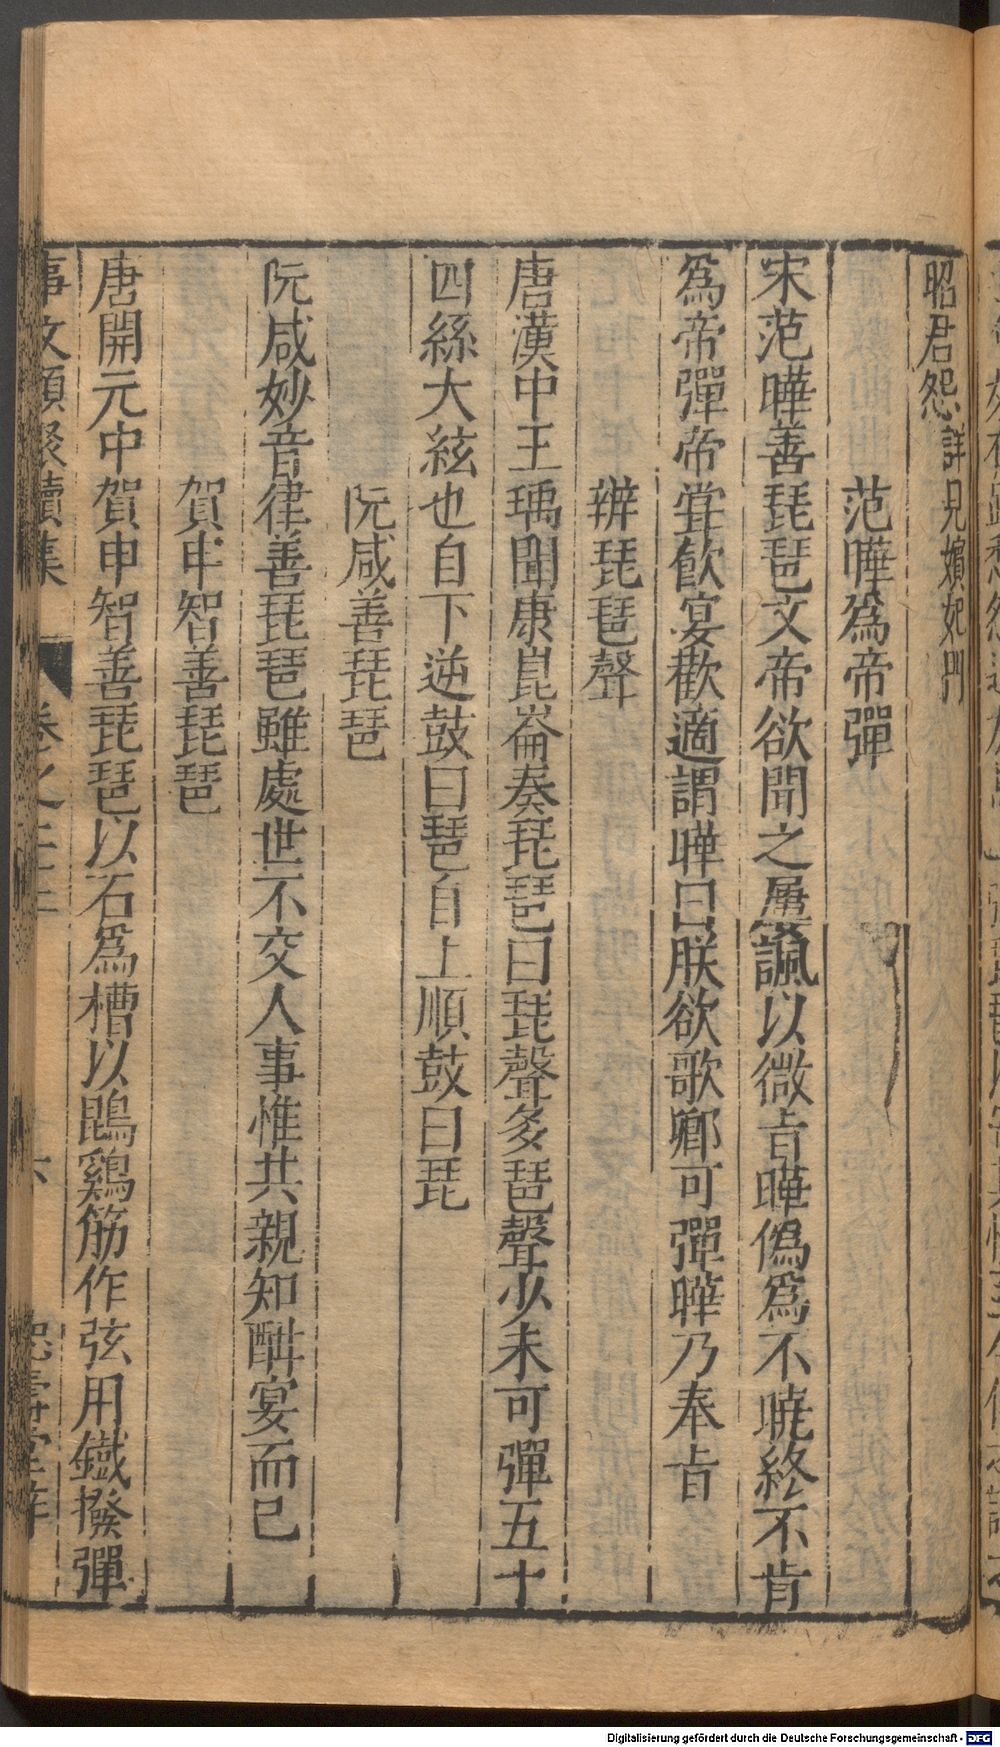 昭君怨詳見嬪妃門
范曄爲帝彈
宋范曄善琵琶文帝欲聞之屢諷以微㫖曄僞爲不曉終不肯
爲帝彈帝甞飲宴歡適謂曄曰朕欲歌卿可彈曄乃奉㫖
辨琵琶聲
唐漢中王瑀聞康崑崙奏琵琶曰琵聲多琶聲少未可彈五十
四絲大絃也自下逆鼓曰琶自上順鼓曰琵
阮咸善琵琶
阮咸妙音律善琵琶雖處世不交人事惟共親知酣宴而已
賀申智善琵琶
唐開元中賀申智善琵琶以石爲槽以鵾鷄筋作弦用鐵撥彈
事文類聚續集 卷之二十 六
Digitalisierung gefördert durch die Deutsche Forschungsgemeinschaft - DFG